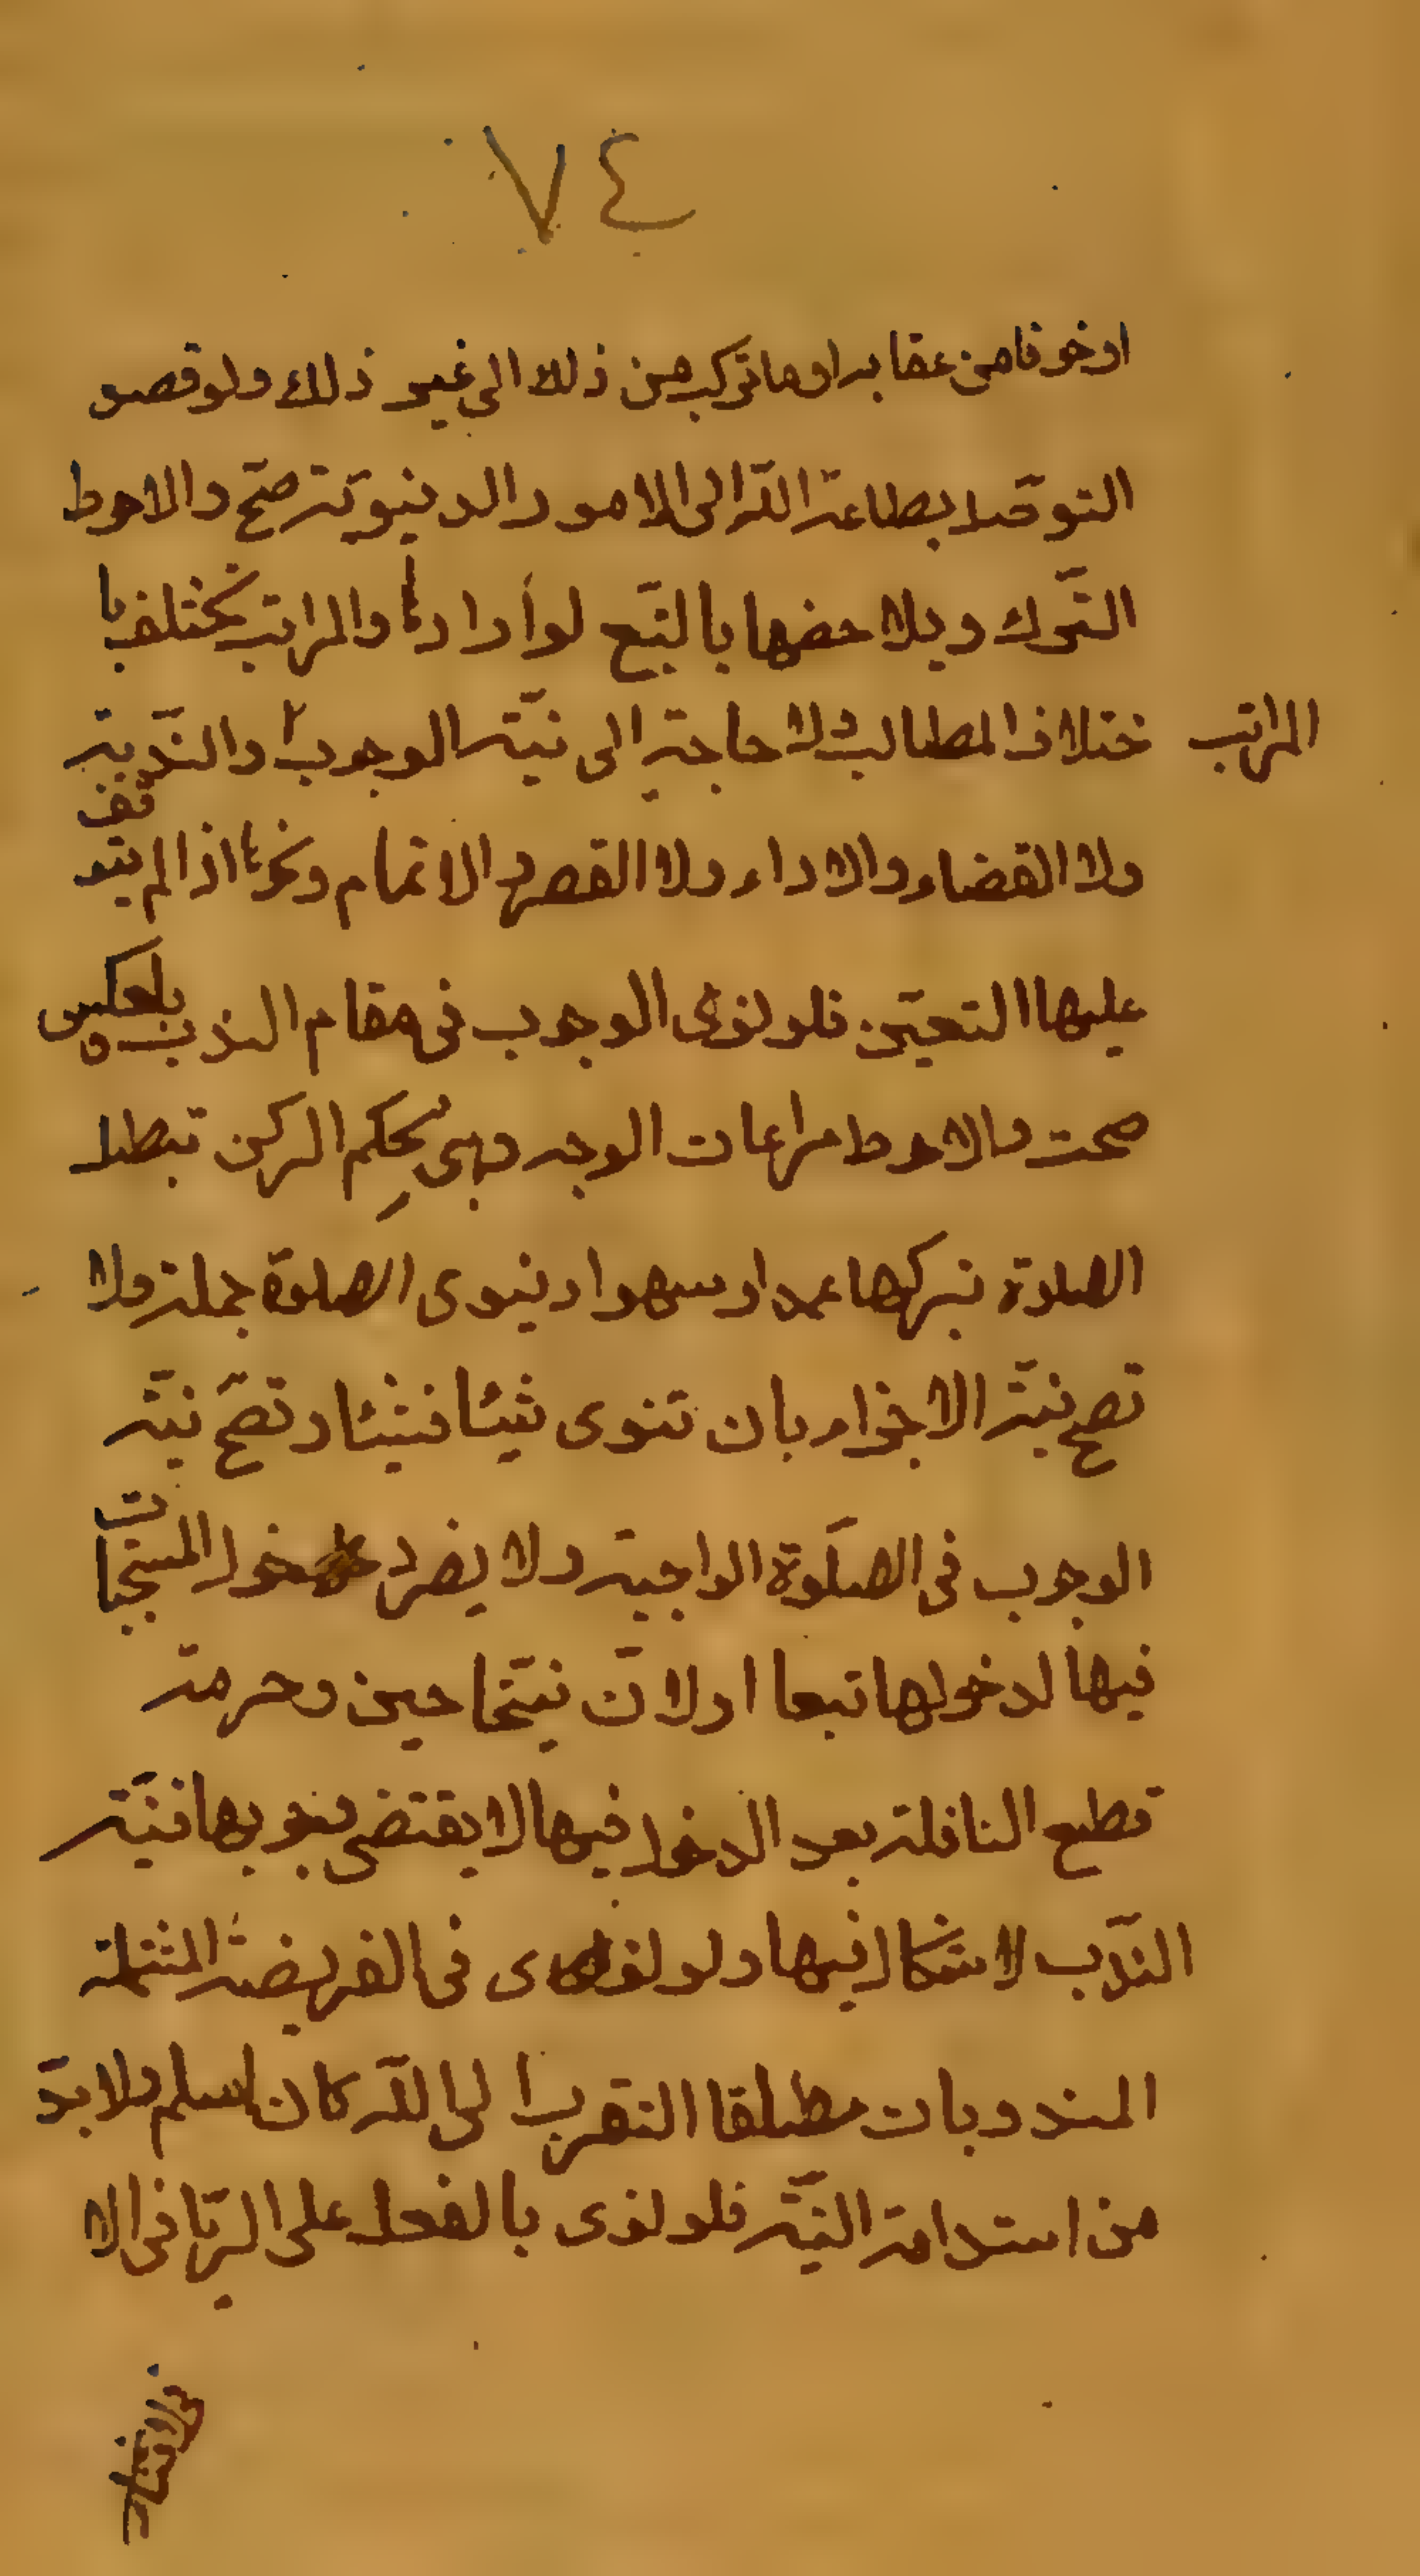 ٧٤
او خوفا من عقابه او ما تركب من ذلك الى غير ذلك ولو قصد
التوصّل بطاعة اللّه الى الامور الدينويّة صحّ والاحوط
التّرك ويلاحضها بالتبّع لو أرادها والمراتب تختلف با
ختلاف المطالب ولا حاجة الى نيّة الوجوب والنّدبية
المراتب
ولا القضاء والاداء ولا القصر والاتمام ونحوها اذا لم يتو
قف
عليها التعيّن فلو نوى الوجوب فى مقام الندب و بلعكس
صحت والاحوط مراعات الوجه وهى بحكم الركن تبطل
الصلوة بتركها عمدا وسهوا وينوى الصلوة جملة ولا
تصح نيّة الاجزاء بان تنوى شيئا فشيئا وتصّح نيّة
الوجوب فى الصلّوة الواجبة ولا يضر دخول المستحبات
فيها لدخولها تبعا اولانّ نيّتها حين وحرمة
قطع النافلة بعد الدخول فيها لا يقتضى بوجوبها فنيّة
الندّب لاشكال فيها ولو نوى فى الفريضة المشتملة
المندوبات مطلقا التقرب الى اللّه كان اسلم ولا بدّ
من استدامة النيّة فلو نوى بالفعل على الريّا فى الا